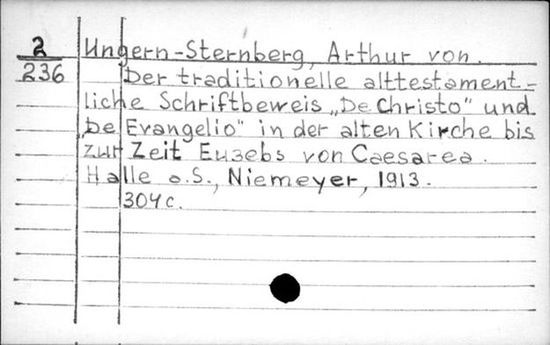 2 Ungern-Sternberg, Arthur von.
236 Der traditionelle alttestament-
liche Schriftbeweis „De Christo" und
„De Evangelio" in der alten Kirche bis
zur Zeit Eusebs von Caesarea.
Halle a.S., Niemeyer, 1913.
304 c.